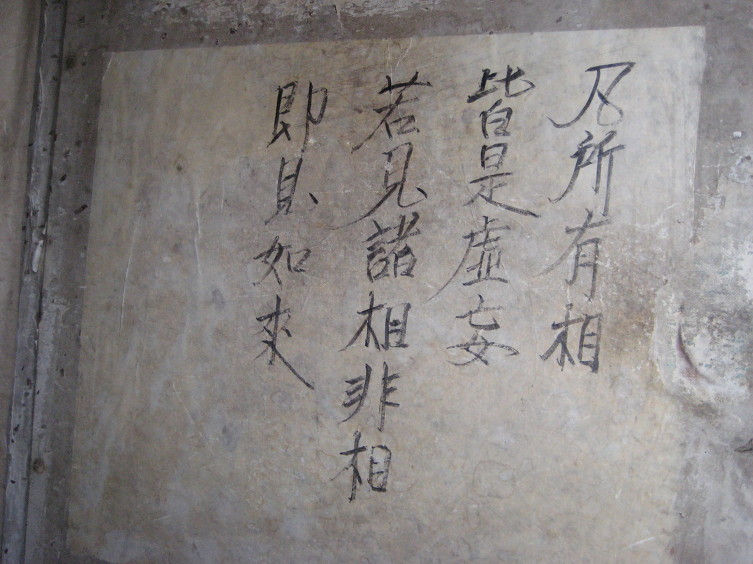 凡所有相
皆是虛妄
若見諸相非相
即見如來